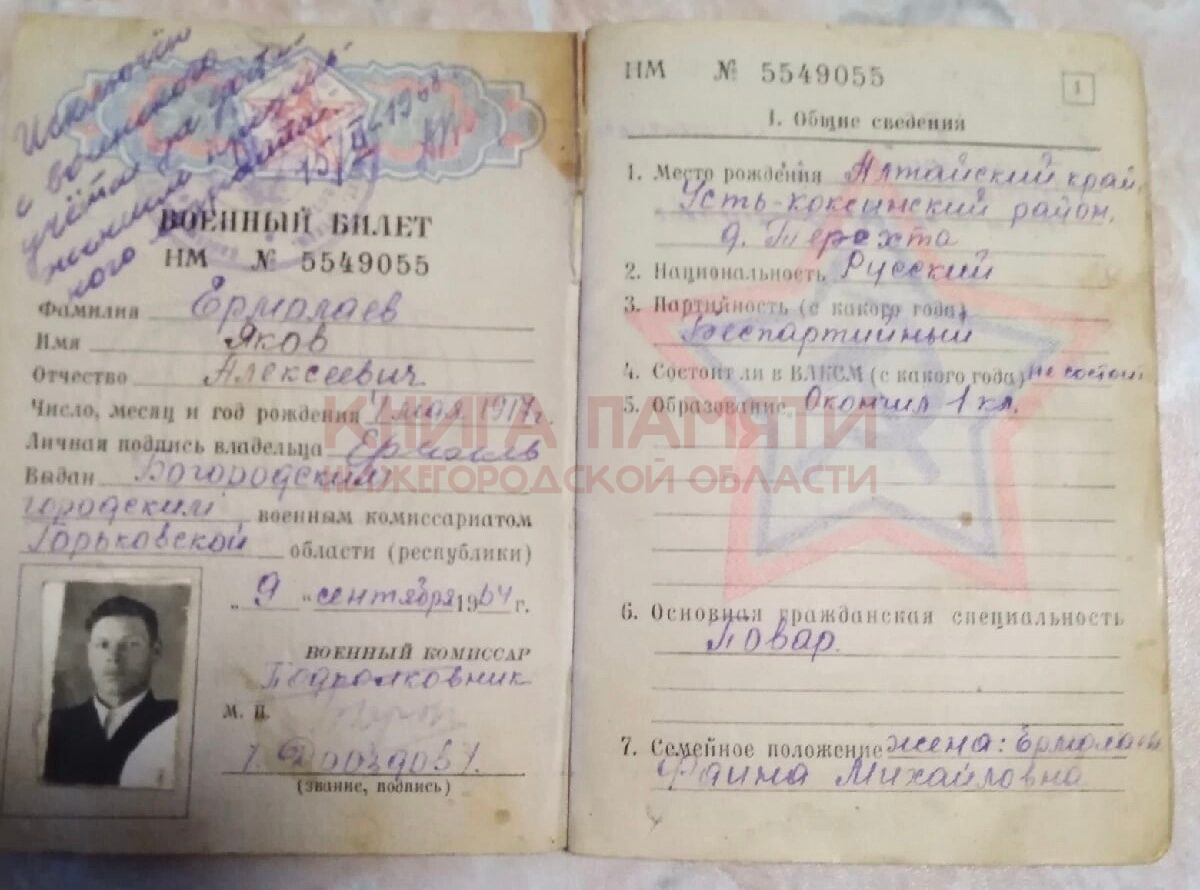 Исключён
с воинского
учёта за дости-
жением предель-
ного возраста.
15/II-1968
ВОЕННЫЙ БИЛЕТ
НМ № 5549055
Фамилия Ермолаев
Имя Яков
Отчество Алексеевич
Число, месяц и год рождения 7 мая 1917 г.
Личная подпись владельца
Выдан Богородским
городским военным комиссариатом
Горьковской области (республики)
„ 9 " сентября 1964 г.
ВОЕННЫЙ КОМИССАР
Подполковник
М. П.
(звание, подпись)
НМ № 5549055
1
I. Общие сведения
1. Место рождения Алтайский край,
Усть-коксинский район,
д. Терехта
2. Национальность Русский
3. Партийность (с какого года)
Беспартийный
4. Состоит ли в ВЛКСМ (с какого года) не состоит
5. Образование Окончил 1 кл.
6. Основная гражданская специальность
Повар.
7. Семейное положение жена: Ермолаева
Фаина Михайловна
КНИГА ПАМЯТИ
НИЖЕГОРОДСКОЙ ОБЛАСТИ